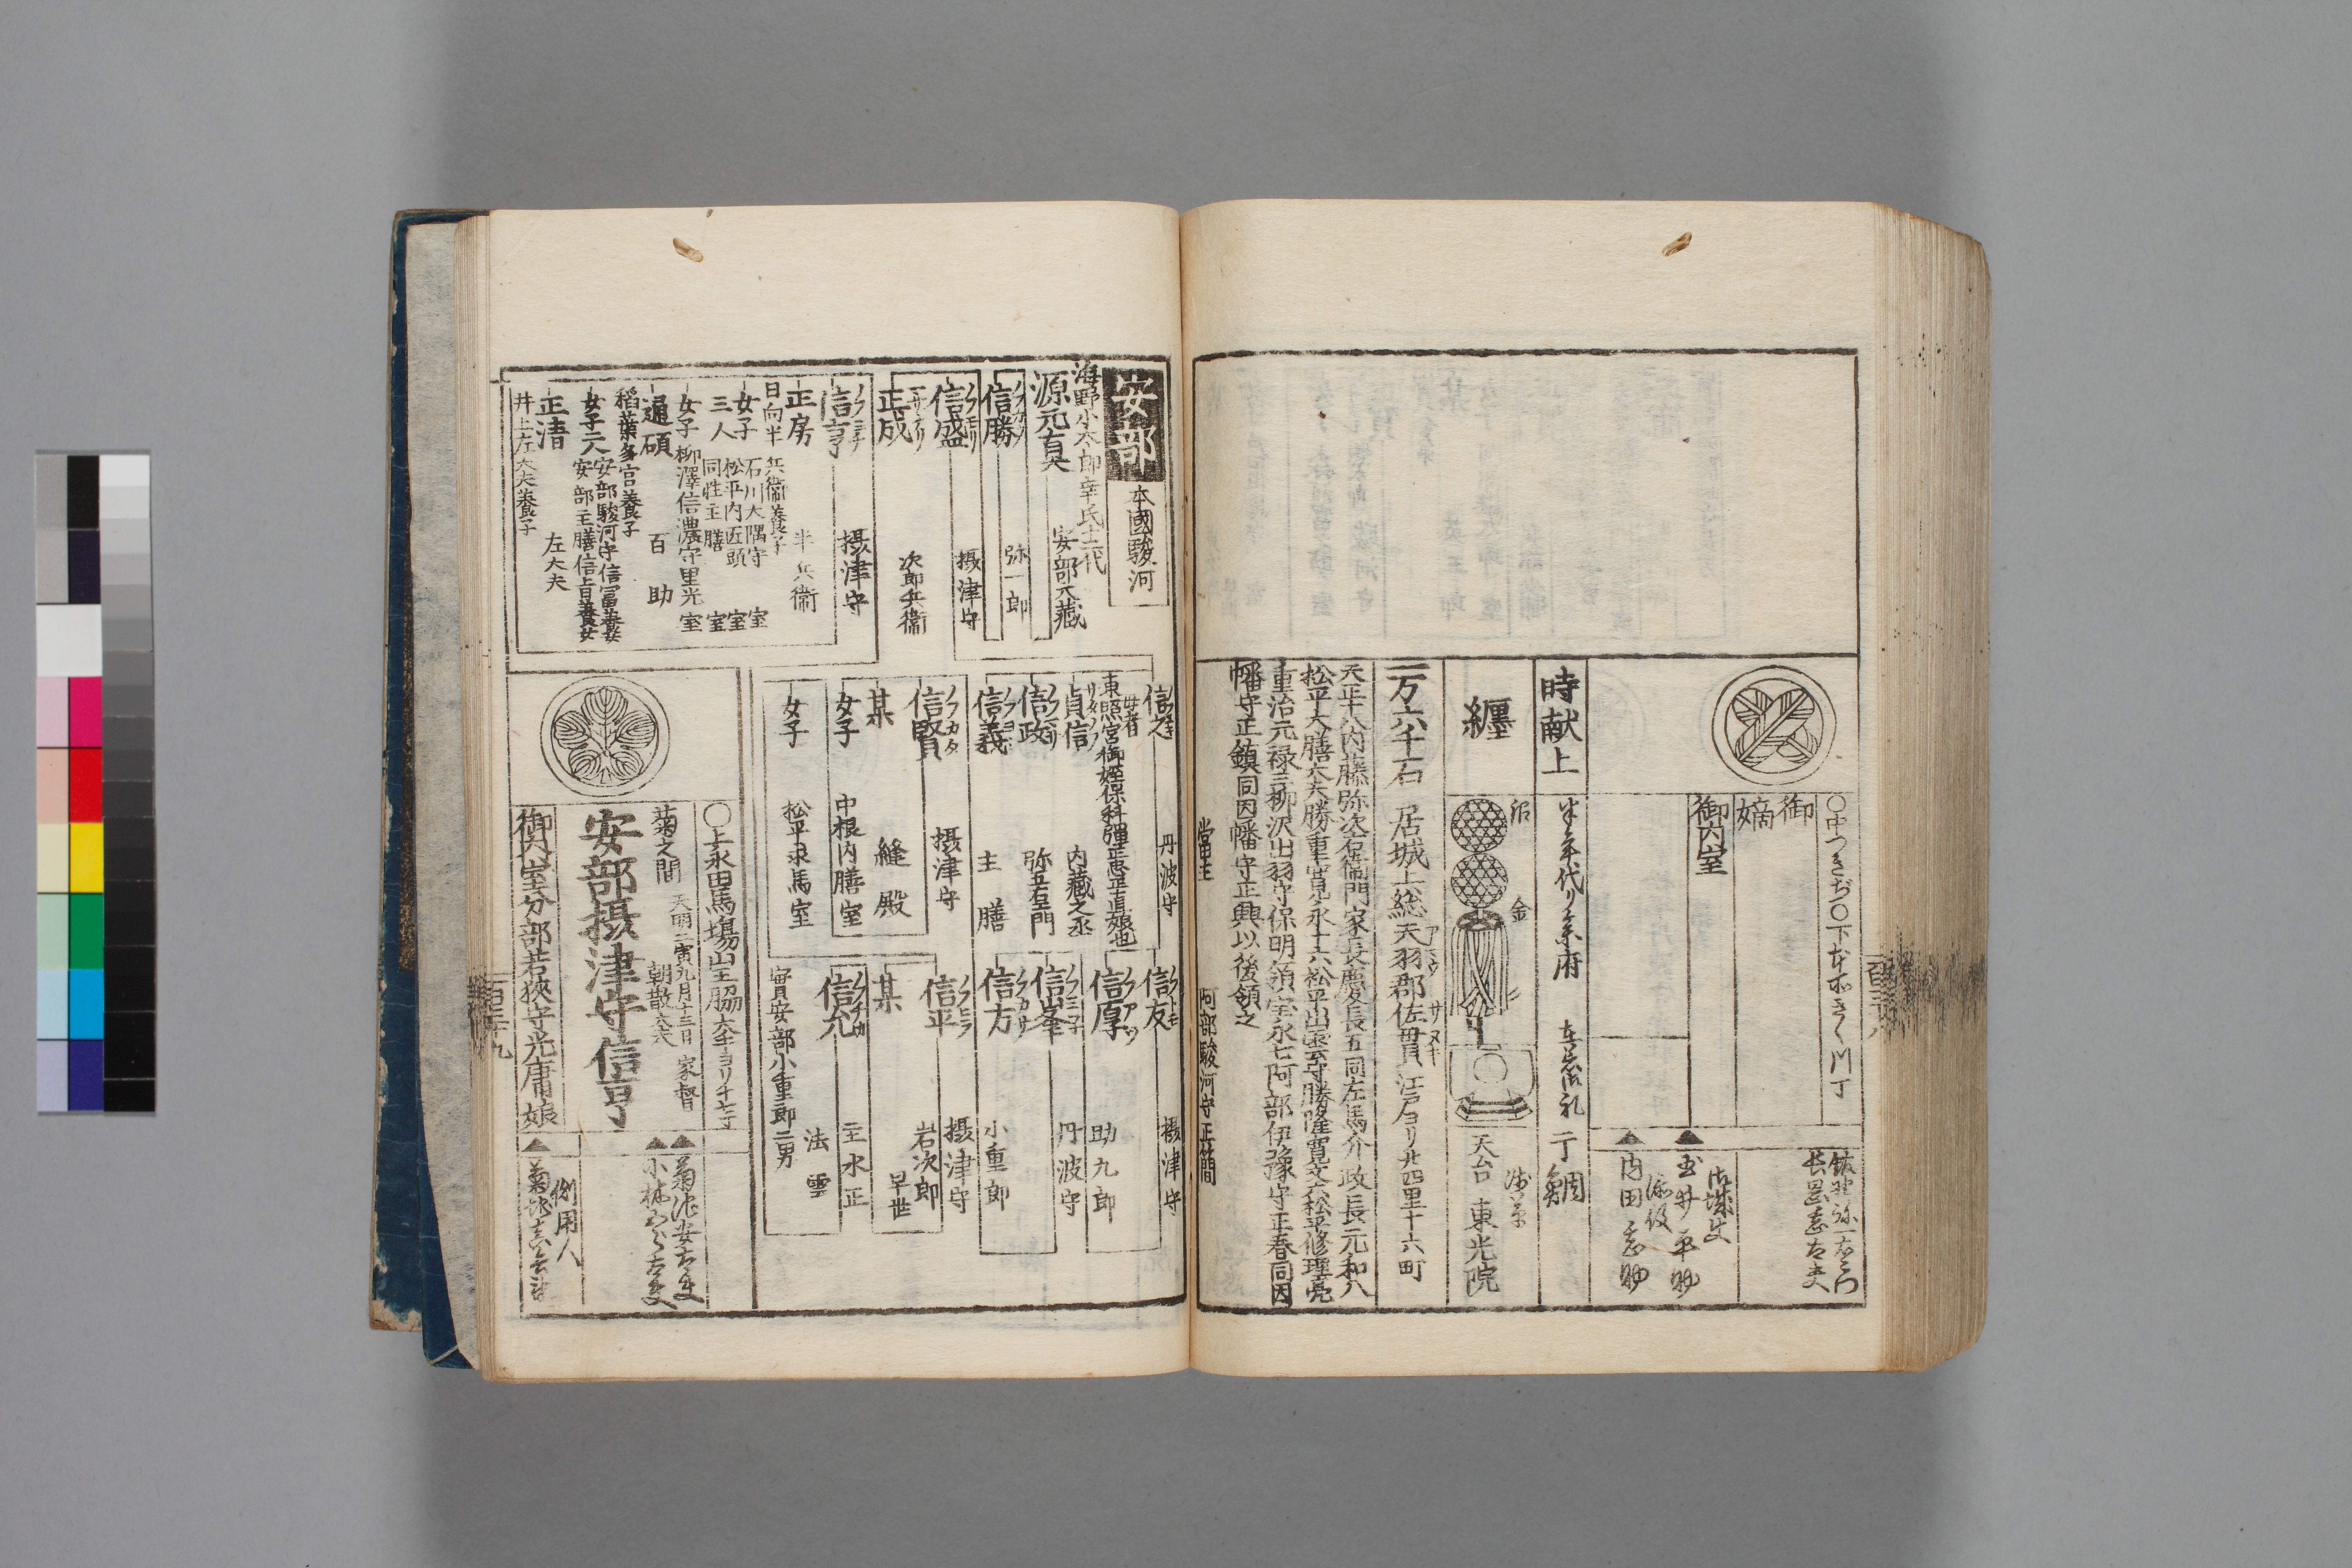 御嫡
御内室
時献上
在着御礼
干鯛
纒
金
天台
東光院
一万六千石
居城上総天羽郡佐貫
アマウ
サヌキ
江戸ヨリ廿四里十六町
天正十八内藤弥次右衛門家長慶長五同左馬介政長元和八
松平大膳大夫勝重寛永十六松平出雲守勝隆寛文六松平修理亮
重治元禄三柳沢出羽守保明領宝永七阿部伊豫守正春同因
幡守正鎮同因幡守正興以後領之
当主
阿部駿河守正簡
安部
本國駿河
海野小太郎幸氏十二代
源元真
安部大藏
信勝
弥一郎
信盛
摂津守
正成
次郎兵衛
信亨
摂津守
正房
半兵衛
日向半兵衛養子
女子三人
石川大隅守室
松平内匠頭室
同姓主膳室
女子
柳澤信濃守里光室
通碩
百助
稻葉多宮養子
女子二人
安部駿河守信富養女
安部主膳信旨養女
正清
左大夫
井上左大夫養子
信之
丹波守
母者
東照宮御姪保科彈正忠正直娘也
貞信
内藏之丞
信政
弥五左門
信義
主膳
信賢
ノフカタ
摂津守
某
縫殿
女子
中根内膳室
女子
松平求馬室
信友
ノフトモ
摂津守
信厚
ノフアツ
助九郎
信峯
ノフミネ
丹波守
信方
ノフカタ
小重郎
信平
ノフヒラ
摂津守
某
岩次郎
早世
信允
ノフチカ
主水正
法雲
實安部小重郎二男
〇上永田馬場山王脇
菊之間
天明二寅九月十三日家督
朝散大夫
安部摂津守信亨
御内室分部若狹守光庸娘
側用人